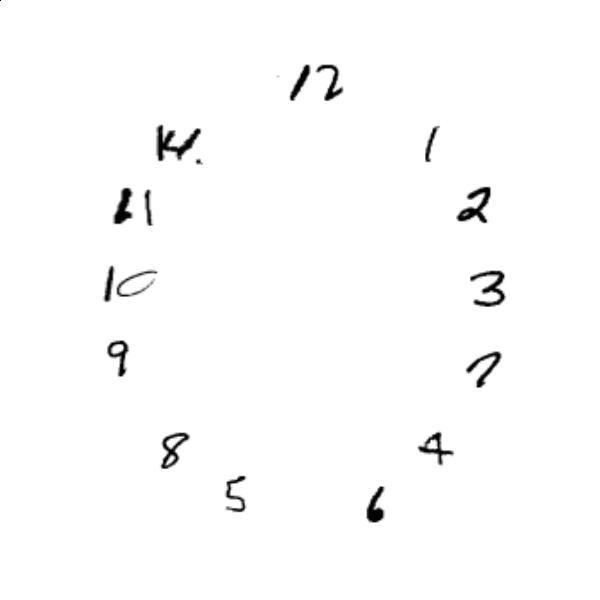 12
1
2
3
7
4
6
5
8
9
10
11
14.